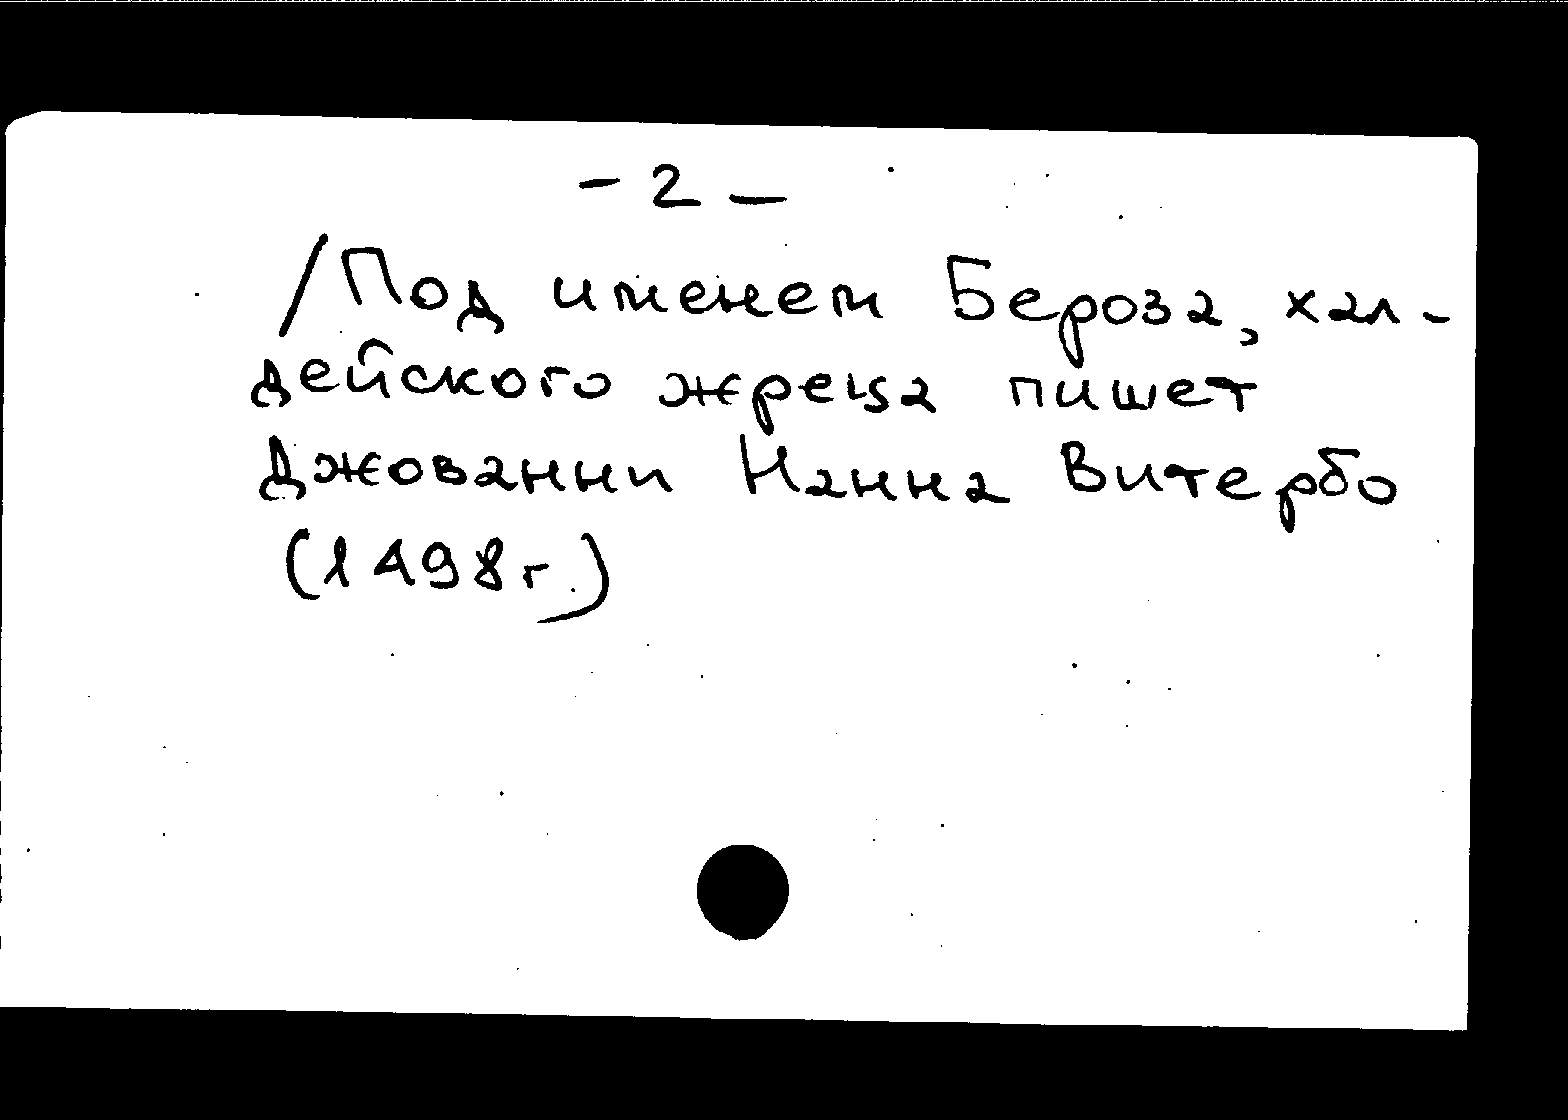 - 2 -
/Под именем Бероза, хал-
дейского жреца пишет
Джованни Нанна Витербо
(1498г.)